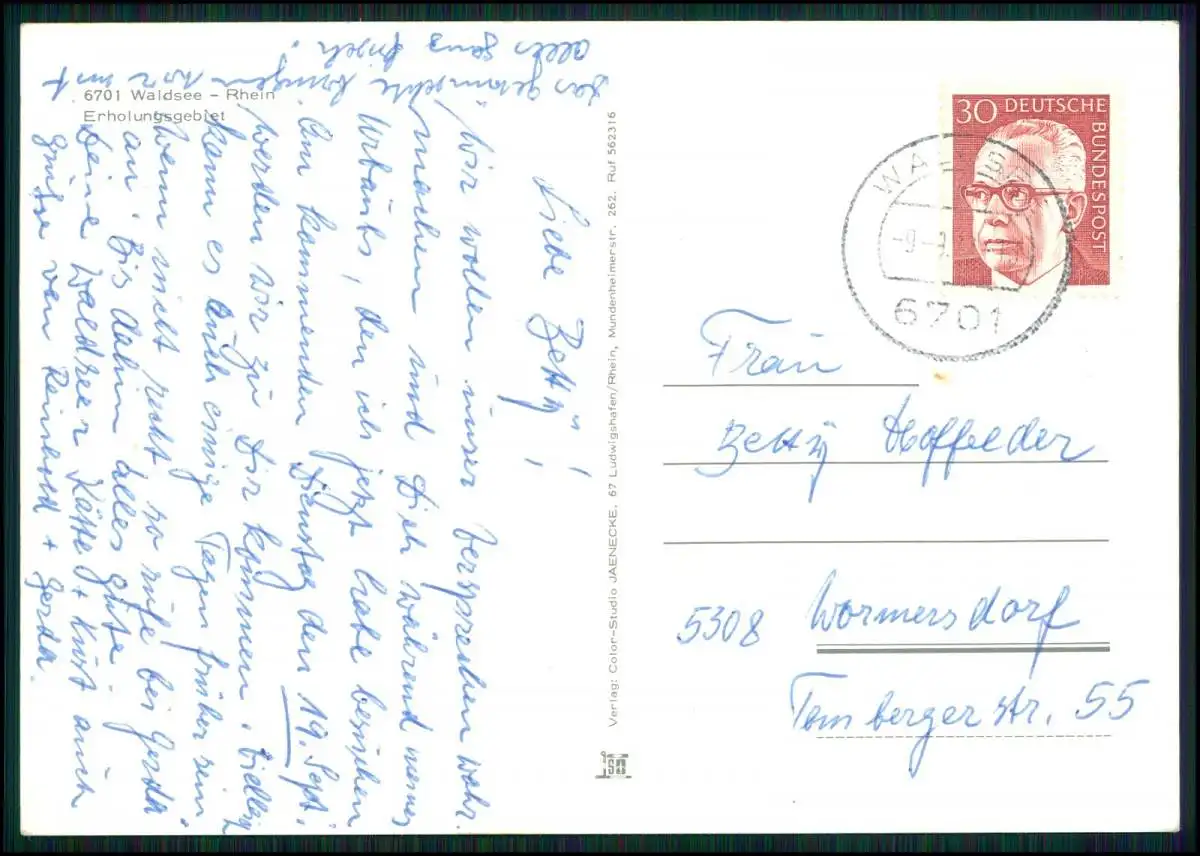 6701 Waldsee – Rhein
Erholungsgebiet
Liebe Betty!
Wir wollen unser Versprechen wahr
machen und Dich während meines
Urlaubs, den ich jetzt habe besuchen
Am kommenden Dienstag den 19. Sept.
werden wir zu Dir kommen. Vielleicht
kann es auch einige Tagen früher sein.
Wenn nicht recht so rufe bei Gerda
an. Bis dahin alles gute
Deine Waldseer Käthe + Kurt auch
grüße von Reinhold + Gerda.
das gewünschte bringen wir mit
alles ganz frisch.
Verlag: Color-Studio JAENECKE, 67 Ludwigshafen/Rhein, Mundenheimerstr. 262. Ruf 562316
30 DEUTSCHE
BUNDESPOST
6701
Frau
Betty Hoffelder
5308 Wormersdorf
Tombergerstr. 55